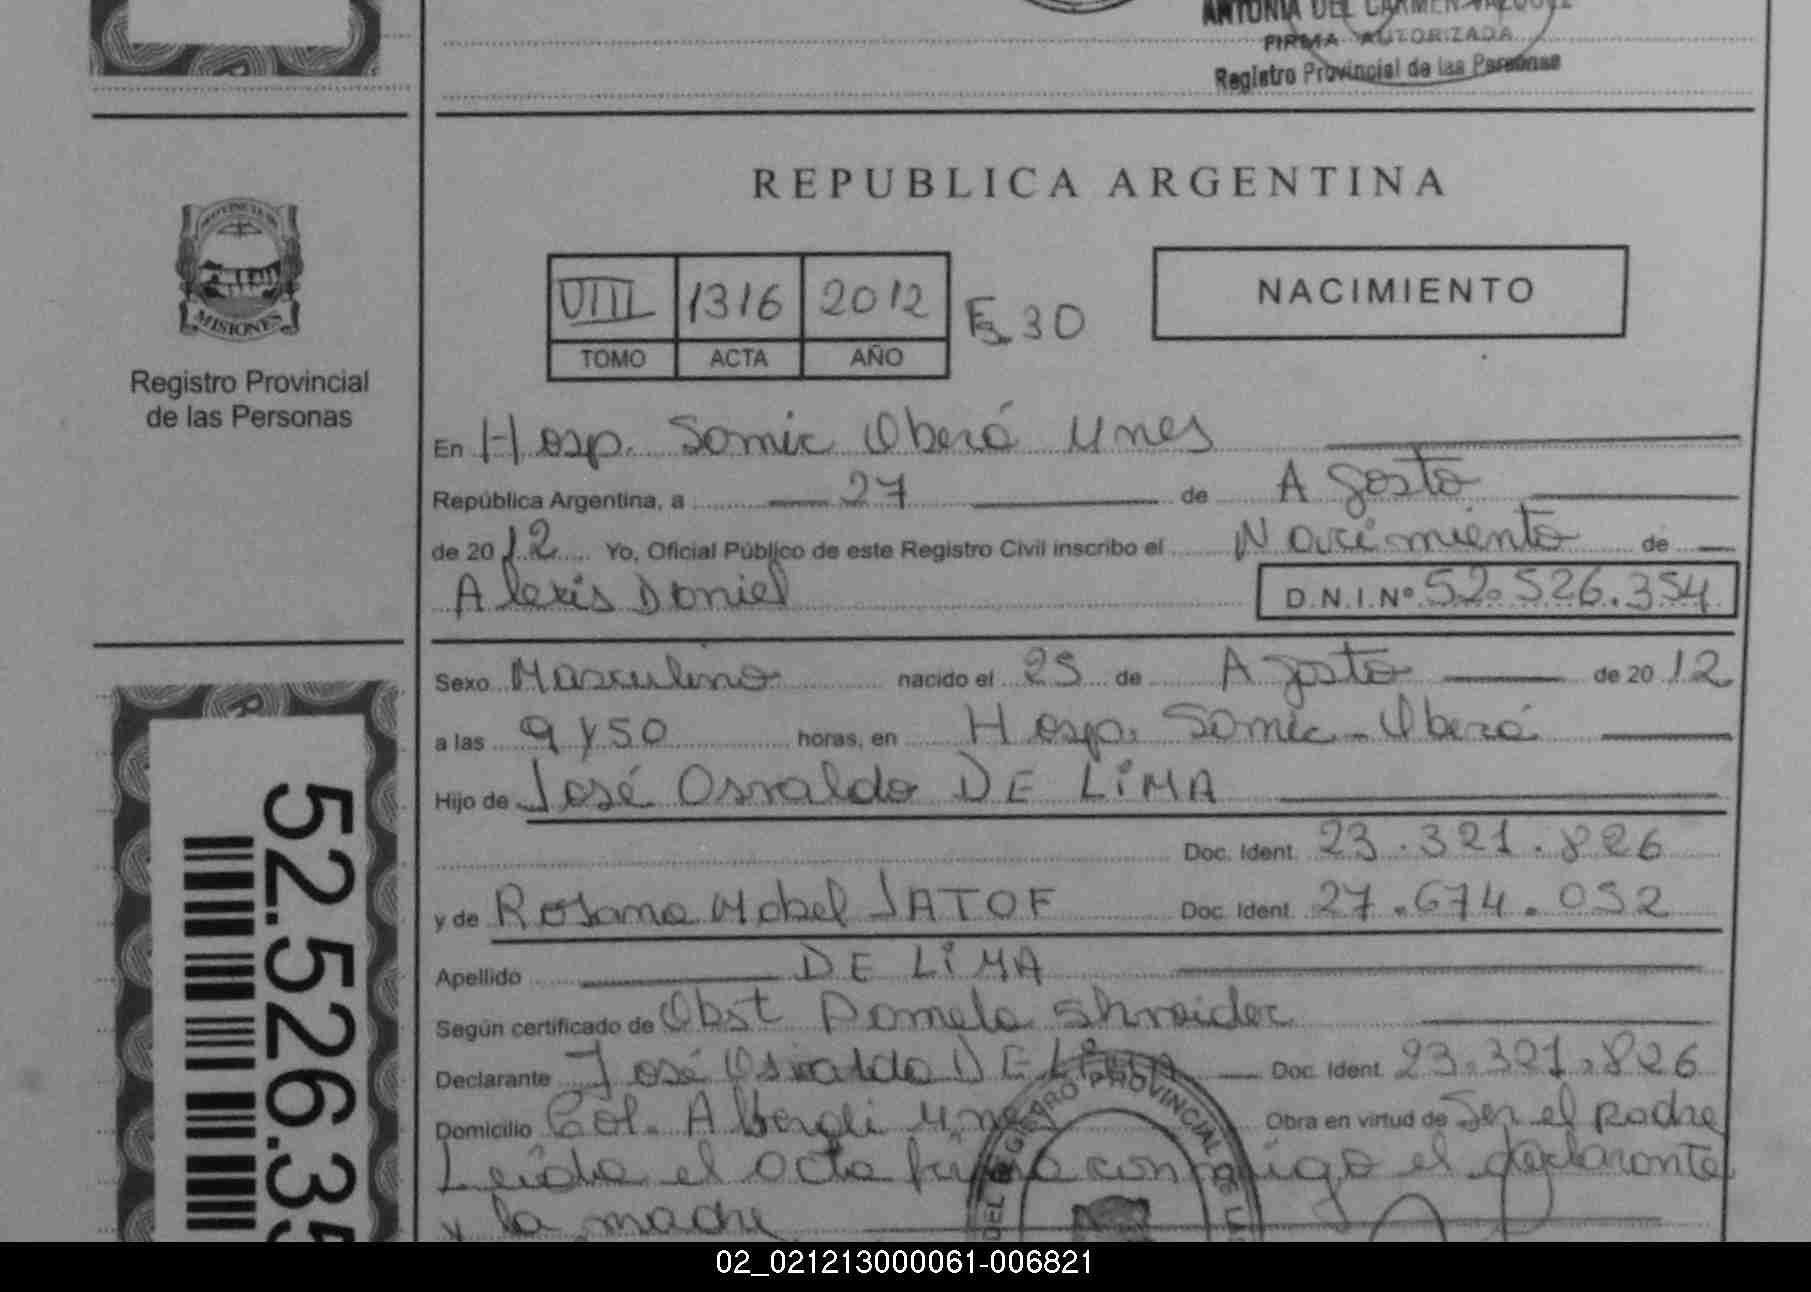 ANTONIA DEL CARMEN VAZQUEZ
FIRMA AUTORIZADA
Registro Provincial de las Personas
REPUBLICA ARGENTINA
VIII 1316 2012 30
TOMO ACTA AÑO
NACIMIENTO
MISIONES
Registro Provincial
de las Personas
En Hosp. Samic Oberá Mnes
República Argentina, a 27 de Agosto
de 2012 Yo, Oficial Público de este Registro Civil inscribo el Nacimiento de
Alexis Daniel D.N.I.Nº 52.526.354
Sexo Masculino nacido el 25 de Agosto de 2012
a las 9 y 50 horas, en Hosp. Samic - Oberá
Hijo de José Osvaldo DE LiMA
Doc. Ident. 23.321.826
y de Rosana Mabel JATOF Doc. Ident. 27.674.052
Apellido DE LiMA
Según certificado de Obst Pamela Shnaider
Declarante José Osvaldo DE LiMA Doc. Ident. 23.321.826
Domicilio Col. Alberdi Mnes Obra en virtud de Ser el padre
Leída el acta firma conmigo el declarante
y la madre
52.526.35
REGISTRO PROVINCIAL DE LA
02_021213000061-006821